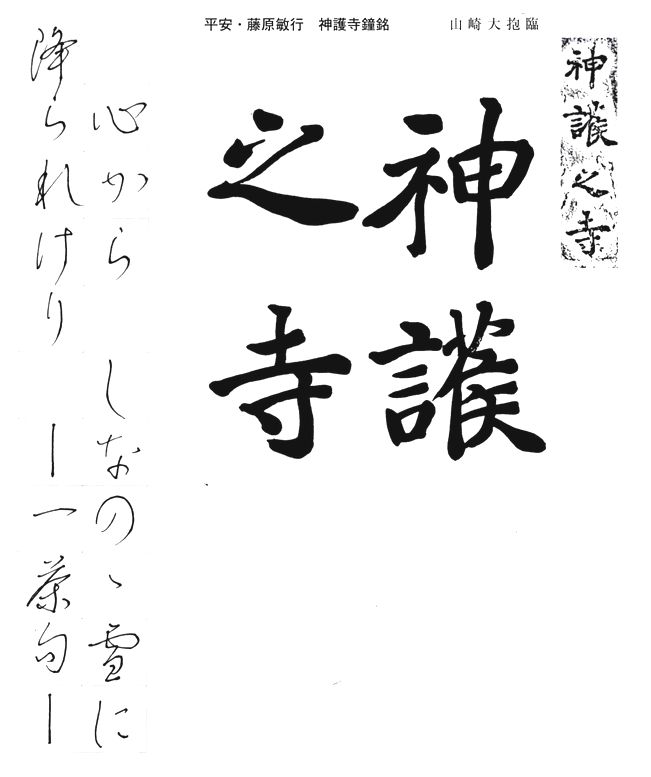 平安・藤原敏行　神護寺鐘銘
山崎大抱臨
神護之寺
神護
之寺
心からしなのゝ雪に
降られけり
―一茶句―